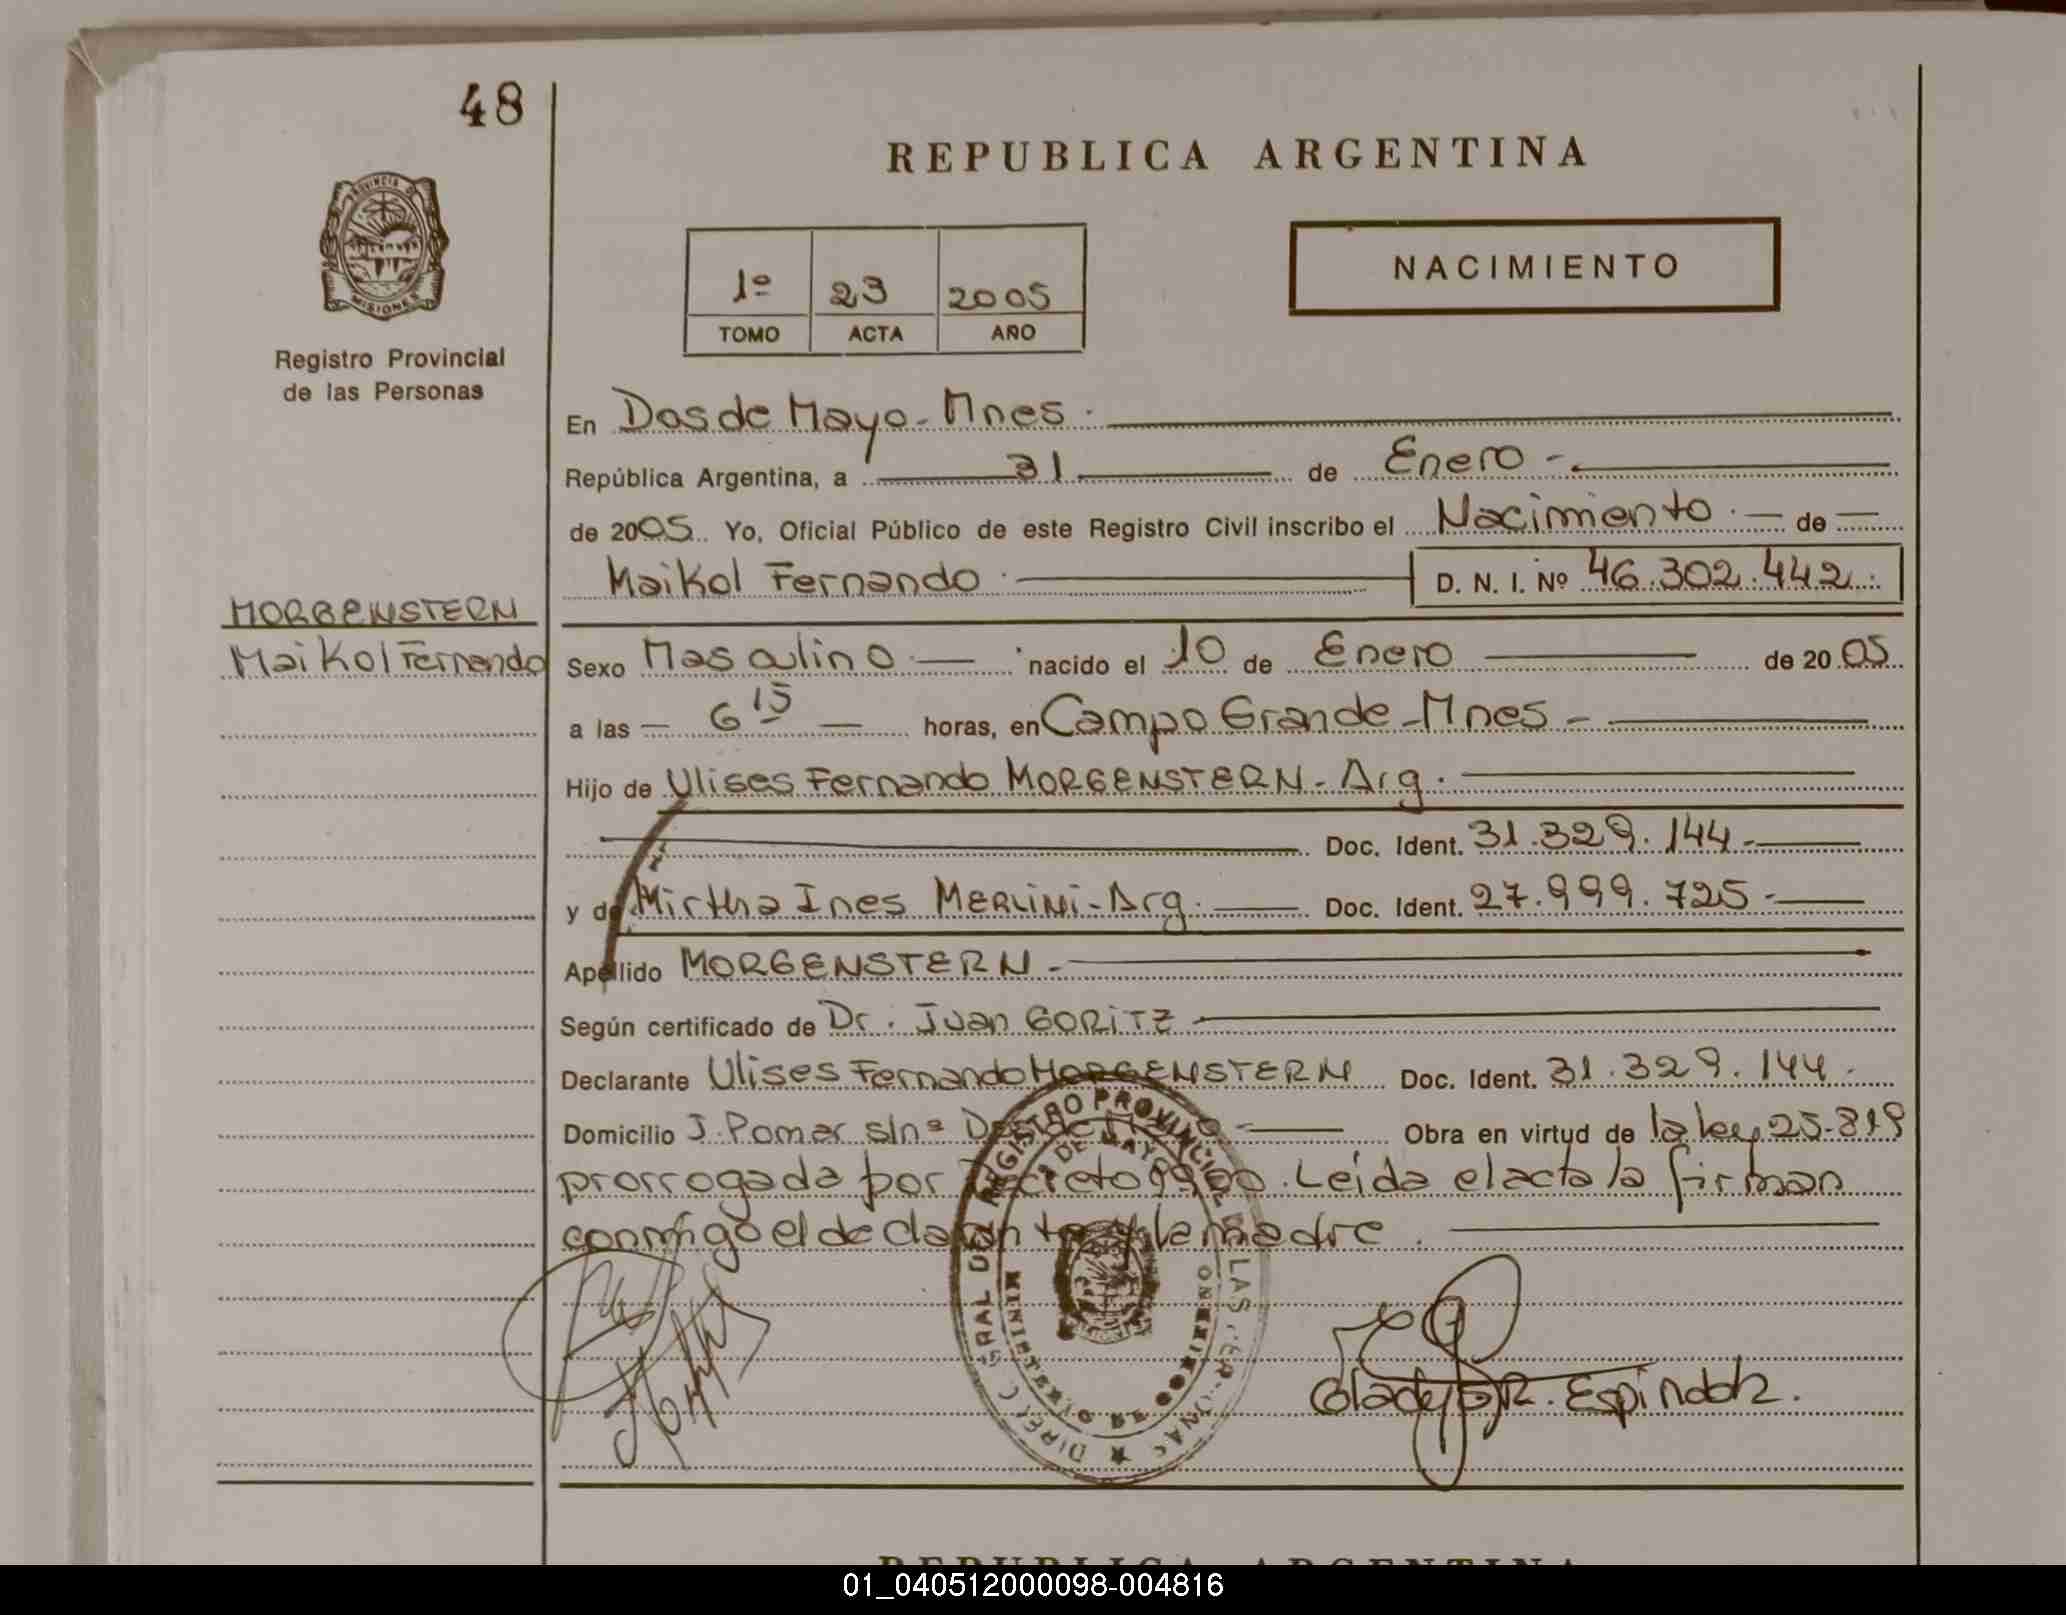 48
REPUBLICA ARGENTINA
NACIMIENTO
1º 23 2005
TOMO ACTA AÑO
PROVINCIA DE
MISIONES
Registro Provincial
de las Personas
En Dos de Mayo - Mnes.
República Argentina, a 31 de Enero -
de 2005. Yo, Oficial Público de este Registro Civil inscribo el Nacimiento de
Maikol Fernando D. N. I. Nº 46.302.442
MORGENSTERN
Maikol Fernando
Sexo Masculino nacido el 10 de Enero de 2005
a las 6 15 horas, en Campo Grande - Mnes -
Hijo de Ulises Fernando MORGENSTERN - Arg.
Doc. Ident. 31.329.144 -
y de Mirtha Ines MERLINI - Arg. Doc. Ident. 27.999.725 -
Apellido MORGENSTERN -
Según certificado de Dr. Juan GORITZ
Declarante Ulises Fernando MORGENSTERN Doc. Ident. 31.329.144 -
Domicilio J. Pomar s/nº Obra en virtud de la ley 25.819
prorrogada por Decreto Leída el acta la firman
conmigo el declarante y la madre.
REGISTRO PROVINCIAL DE LAS PERSONAS
MINISTERIO DE GOBIERNO
Gladys R. Espindola.
REPUBLICA ARGENTINA
01_040512000098-004816